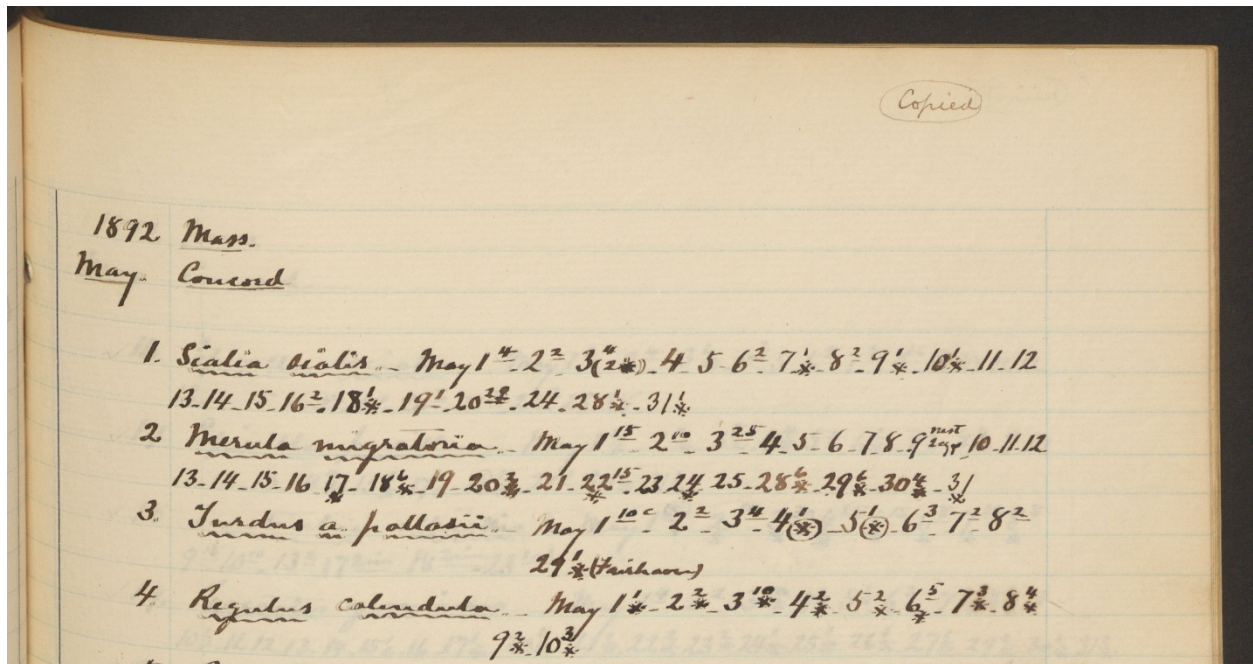 Copied
1892 Mass.
May. Concord
1. Sialia sialis - May 1 4 - 2 2 - 3 4 (2*) - 4 - 5 - 6 2 - 7 1* - 8 2 - 9 1* - 10 1* - 11 - 12
13 - 14 - 15 - 16 2 - 18 1* - 19 1 - 20 - 24 - 28 1* - 31 1*
2 Merula migratoria - May 1 15 - 2 10 - 3 25 - 4 - 5 - 6 - 7 - 8 - 9 nest - 10 - 11 - 12
13 - 14 - 15 - 16 - 17 * - 18 6* - 19 - 20 - 21 - 22 15 * - 23 - 24 * - 25 - 28 6* - 29 6* - 30 4* - 31 *
3. Turdus a. pallasii - May 1 10 - 2 2 - 3 4 - 4 1 (*) - 5 1 (*) - 6 3 - 7 2 - 8 2
29 1* (Fairhaven)
4. Regulus calendula - May 1 1* - 2 2* - 3 10* - 4 2* - 5 2* - 6 5* - 7 3* - 8 4*
9 2* - 10 3*